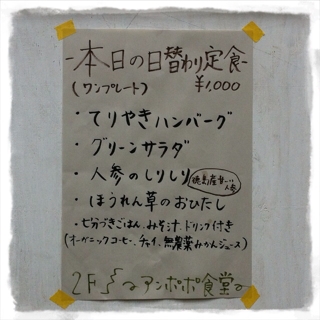 -本日の日替わり定食-
(ワンプレート) ¥1,000
・てりやきハンバーグ
・グリーンサラダ
・人参のしりしり 徳島産 人参
・ほうれん草のおひたし
・七分づきごはん、みそ汁、ドリンク付き
(オーガニックコーヒー、チャイ、無農薬みかんジュース)
2F アンポポ食堂で